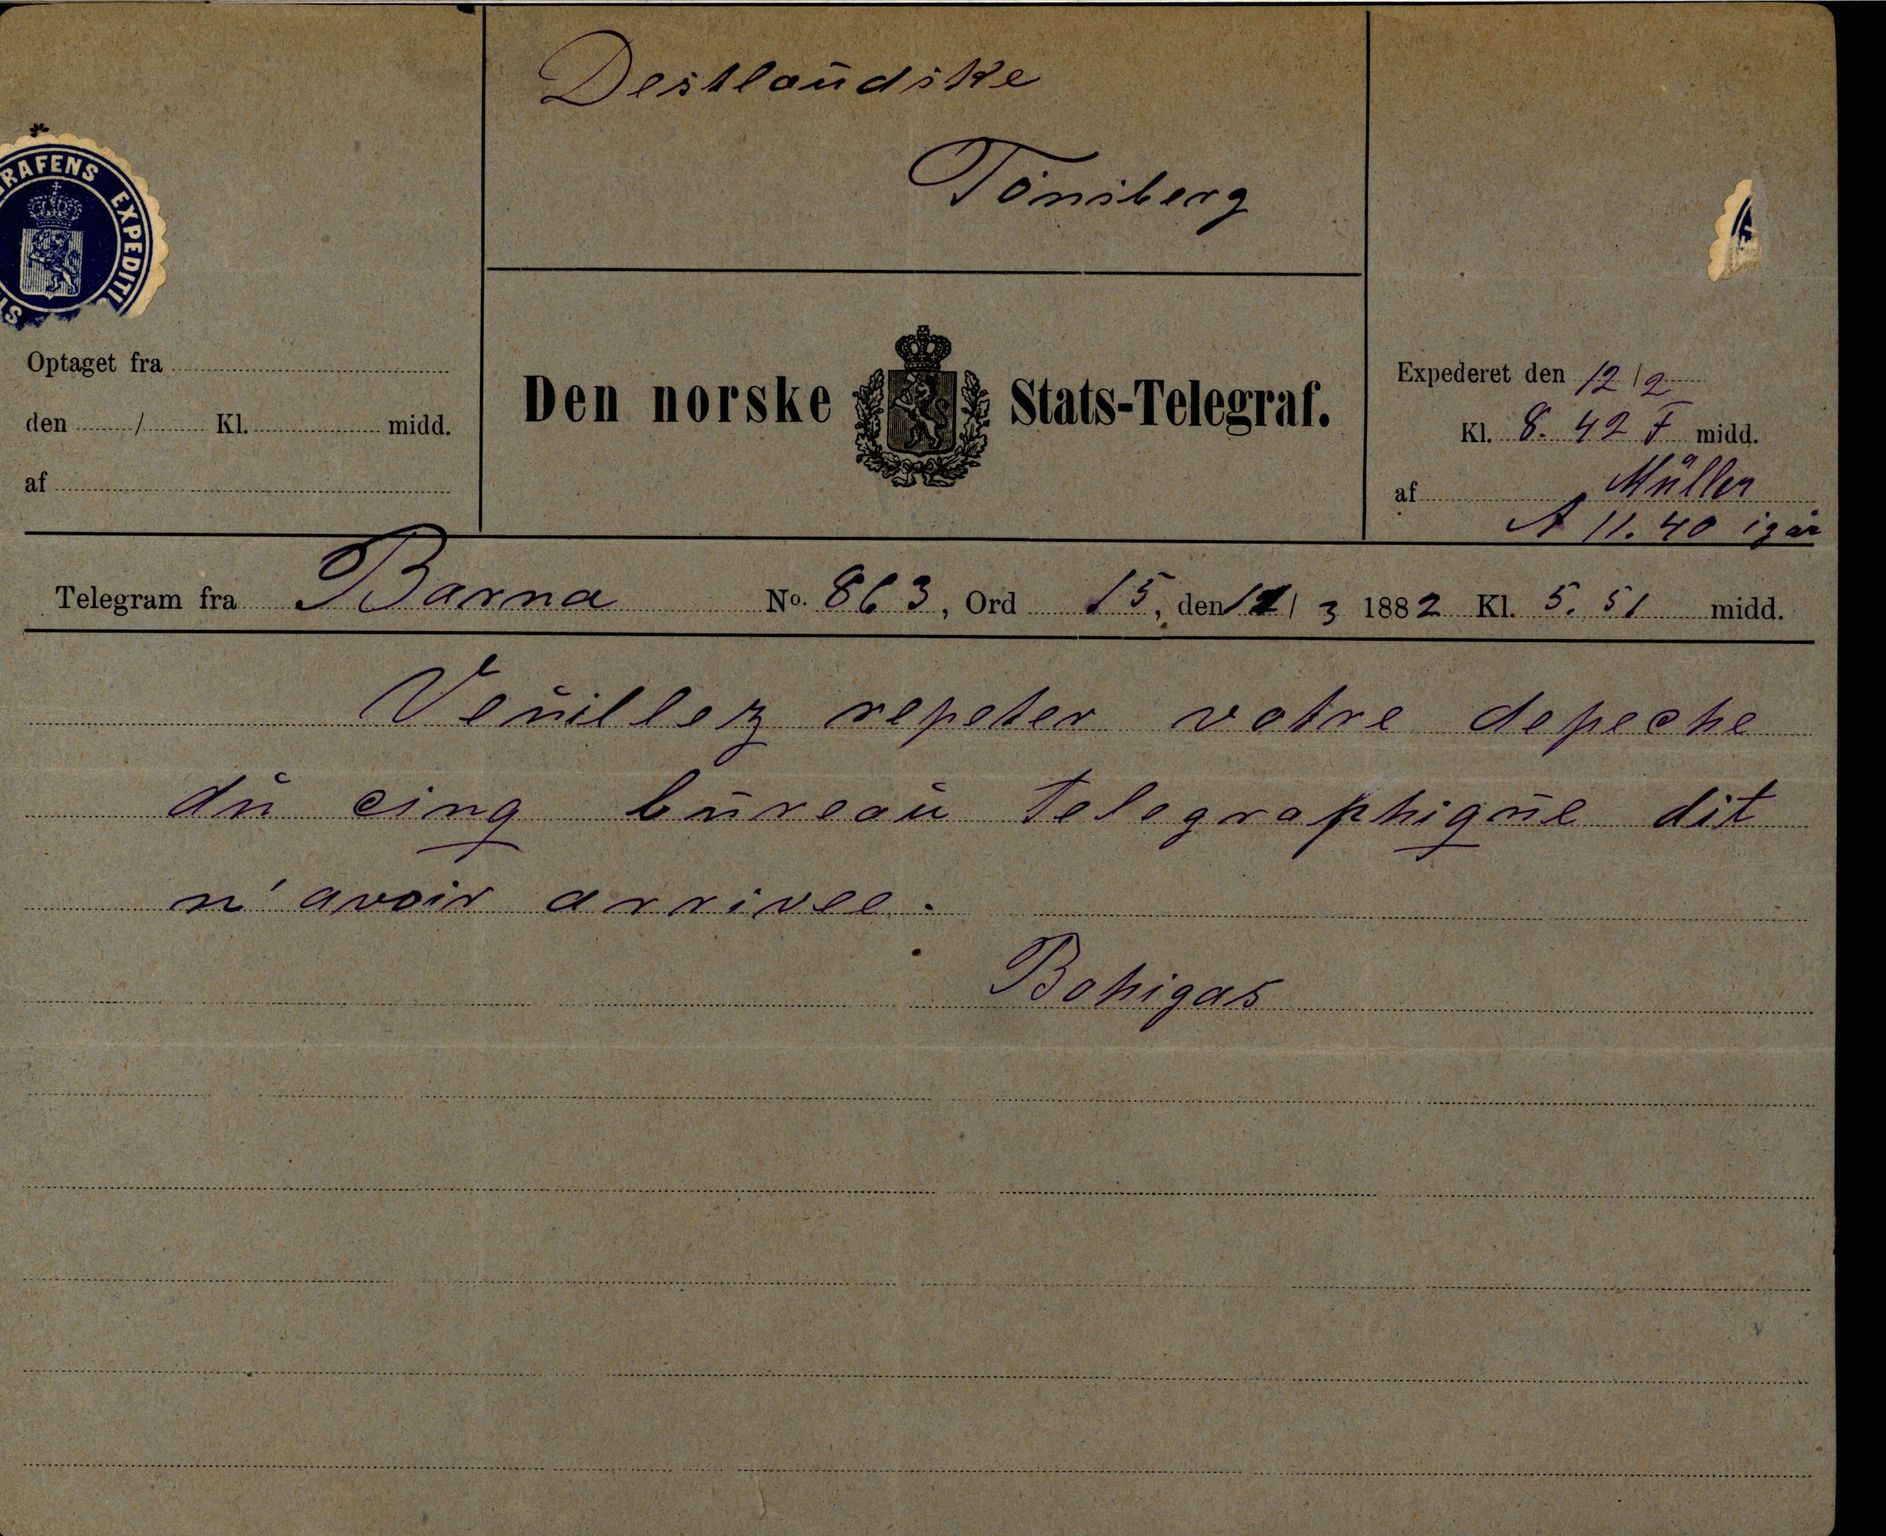 Destlandske
Tönsberg
RAFENS EXPEDITI
Optaget fra
den / Kl. midd.
af
Den norske Stats-Telegraf.
Expederet den 12/2
Kl. 8.42 F midd.
af Müller
A 11.40 igår
Telegram fra Barna No. 863, Ord 15, den 11/3 1882 Kl. 5.51 midd.
Veuillez repeter votre depeche
du cinq bureau telegraphique dit
n'avoir arrivee.
Bohigas